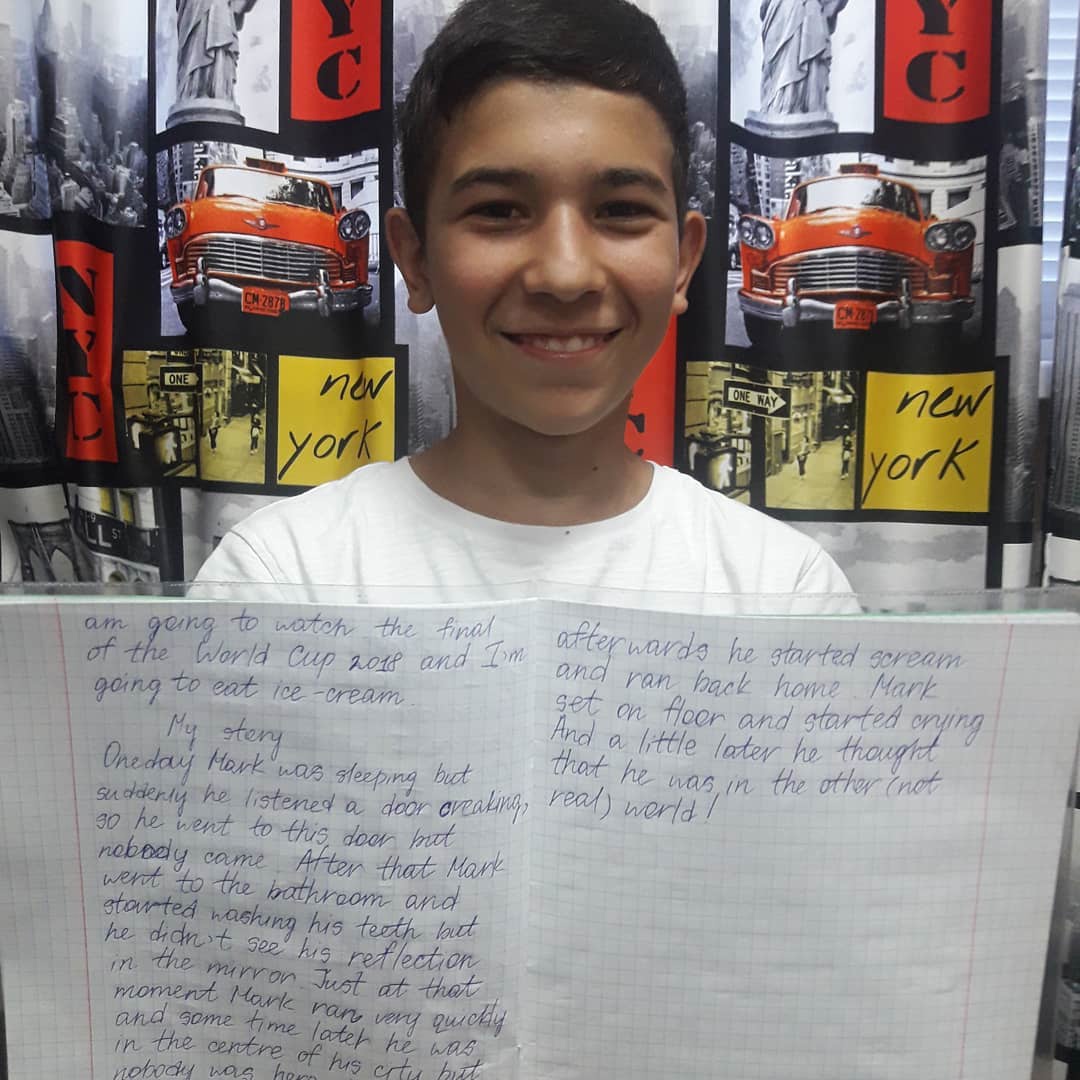 YC
YC
NYC
CM·2878
CM·287
ONE
ONE WAY
new
york
new
york
am going to watch the final
of the World Cup 2018 and I'm
going to eat ice-cream.
My story
Oneday Mark was sleeping but
suddenly he listened a door creaking,
so he went to this door but
nobody came. After that Mark
went to the bathroom and
started washing his teeth but
he didn't see his reflection
in the mirror. Just at that
moment Mark ran very quickly
and some time later he was
in the centre of his city but
nobody was here
afterwards he started scream
and ran back home. Mark
set on floor and started crying
And a little later he thought
that he was in the other (not
real) world!